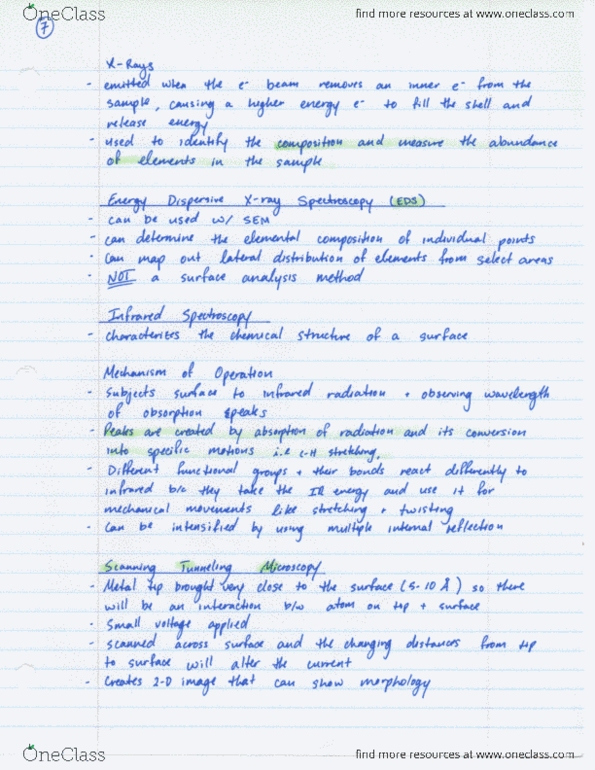 OneClass
find more resources at www.oneclass.com
7
X-Rays
- emitted when the e⁻ beam removes an inner e⁻ from the
sample, causing a higher energy e⁻ to fill the shell and
release energy
- used to identify the composition and measure the abundance
of elements in the sample
Energy Dispersive X-ray Spectroscopy (EDS)
- can be used w/ SEM
- can determine the elemental composition of individual points
- Can map out lateral distribution of elements from select areas
- NOT a surface analysis method
Infrared Spectroscopy
- characterizes the chemical structure of a surface
Mechanism of Operation
- Subjects surface to infrared radiation + observing wavelength
of absorption peaks
- Peaks are created by absorption of radiation and its conversion
into specific motions i.e C-H stretching.
- Different functional groups + their bonds react differently to
infrared b/c they take the IR energy and use it for
mechanical movements like stretching + twisting
- Can be intensified by using multiple internal reflection
Scanning Tunneling Microscopy
- Metal tip brought very close to the surface (5-10 Å) so there
will be an interaction b/w atom on tip + surface
- Small voltage applied
- scanned across surface and the changing distances from tip
to surface will alter the current
- Creates 2-D image that can show morphology
OneClass
find more resources at www.oneclass.com